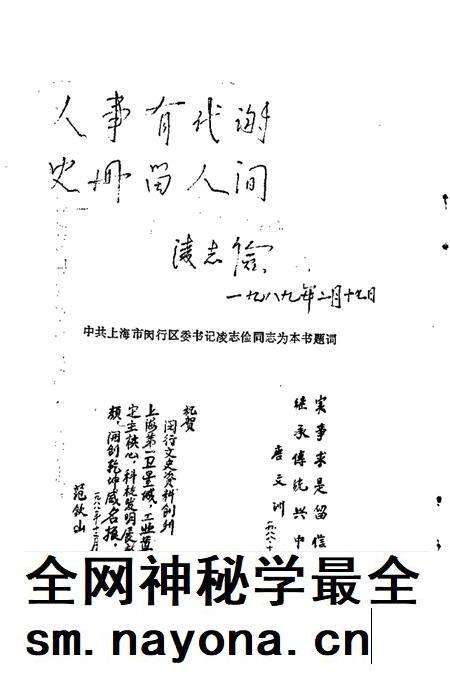 人事有代谢
史册留人间
凌志俭
一九八九年二月十九日
中共上海市闵行区委书记凌志俭同志为本书题词
实事求是留信
继承传统兴中
唐文训
祝贺
闵行文史资料创刊
上海第一卫星城，工业
定主核心，科技发明展
颜，闲创乾坤威名振，
范钦山
一九八八年十二月
全网神秘学最全
sm.nayona.cn